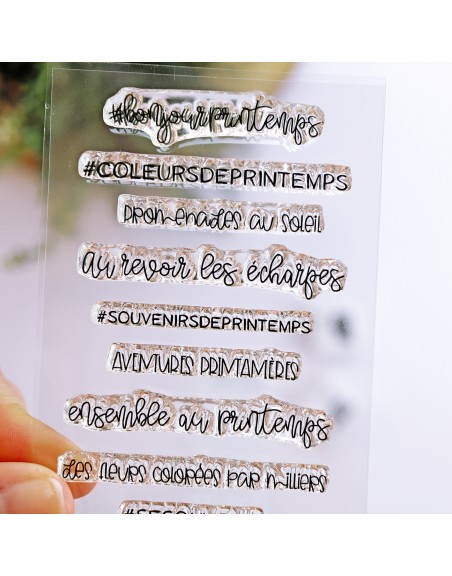 #bonjourprintemps
#COLEURSDEPRINTEMPS
PROMENADES AU SOLEIL
au revoir les écharpes
#SOUVENIRSDEPRINTEMPS
AVENTURES PRINTANIÈRES
ensemble au printemps
LES FLEURS COLORÉES PAR MILLIERS